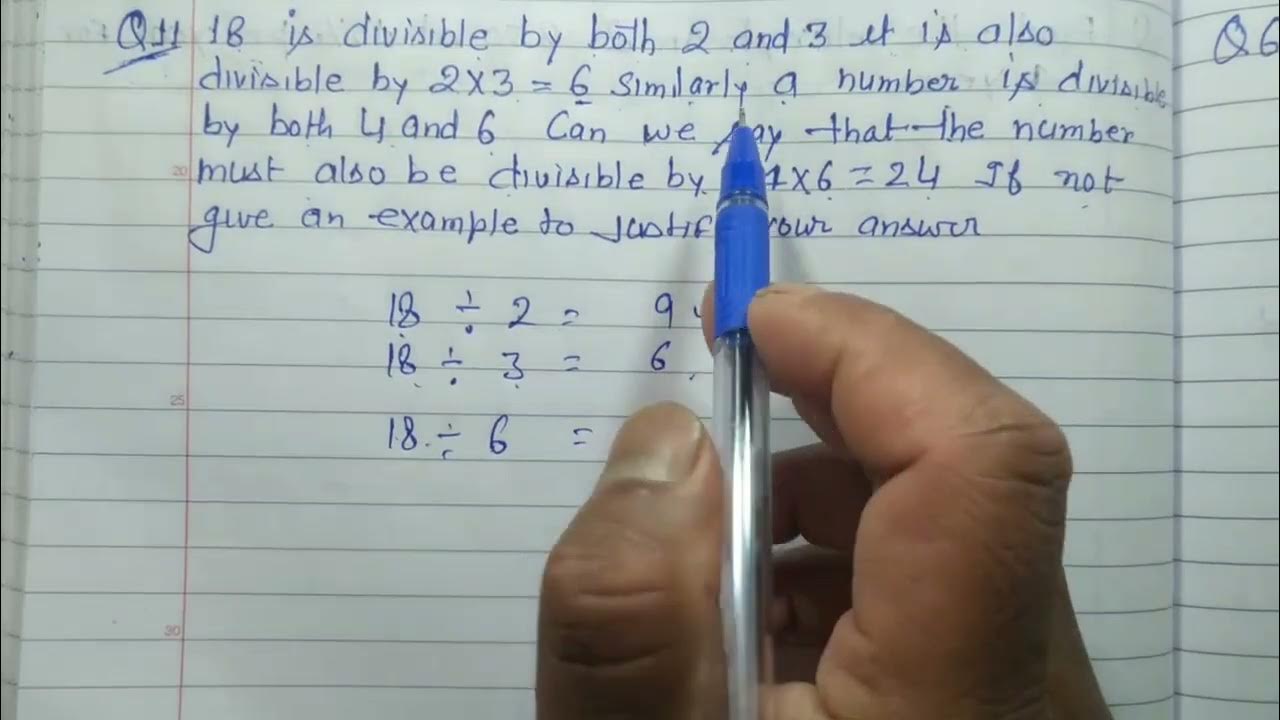 Q11 18 is divisible by both 2 and 3 it is also
divisible by 2×3 = 6 Similarly a number is divisible
by both 4 and 6 Can we say that the number
must also be divisible by ×6 = 24 If not
give an example to your answer
18 ÷ 2 = 9
18 ÷ 3 = 6
18 ÷ 6 =
Q6
20
25
30